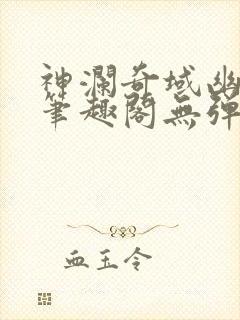 神瀾奇域幽
筆趣閣無彈
血玉令